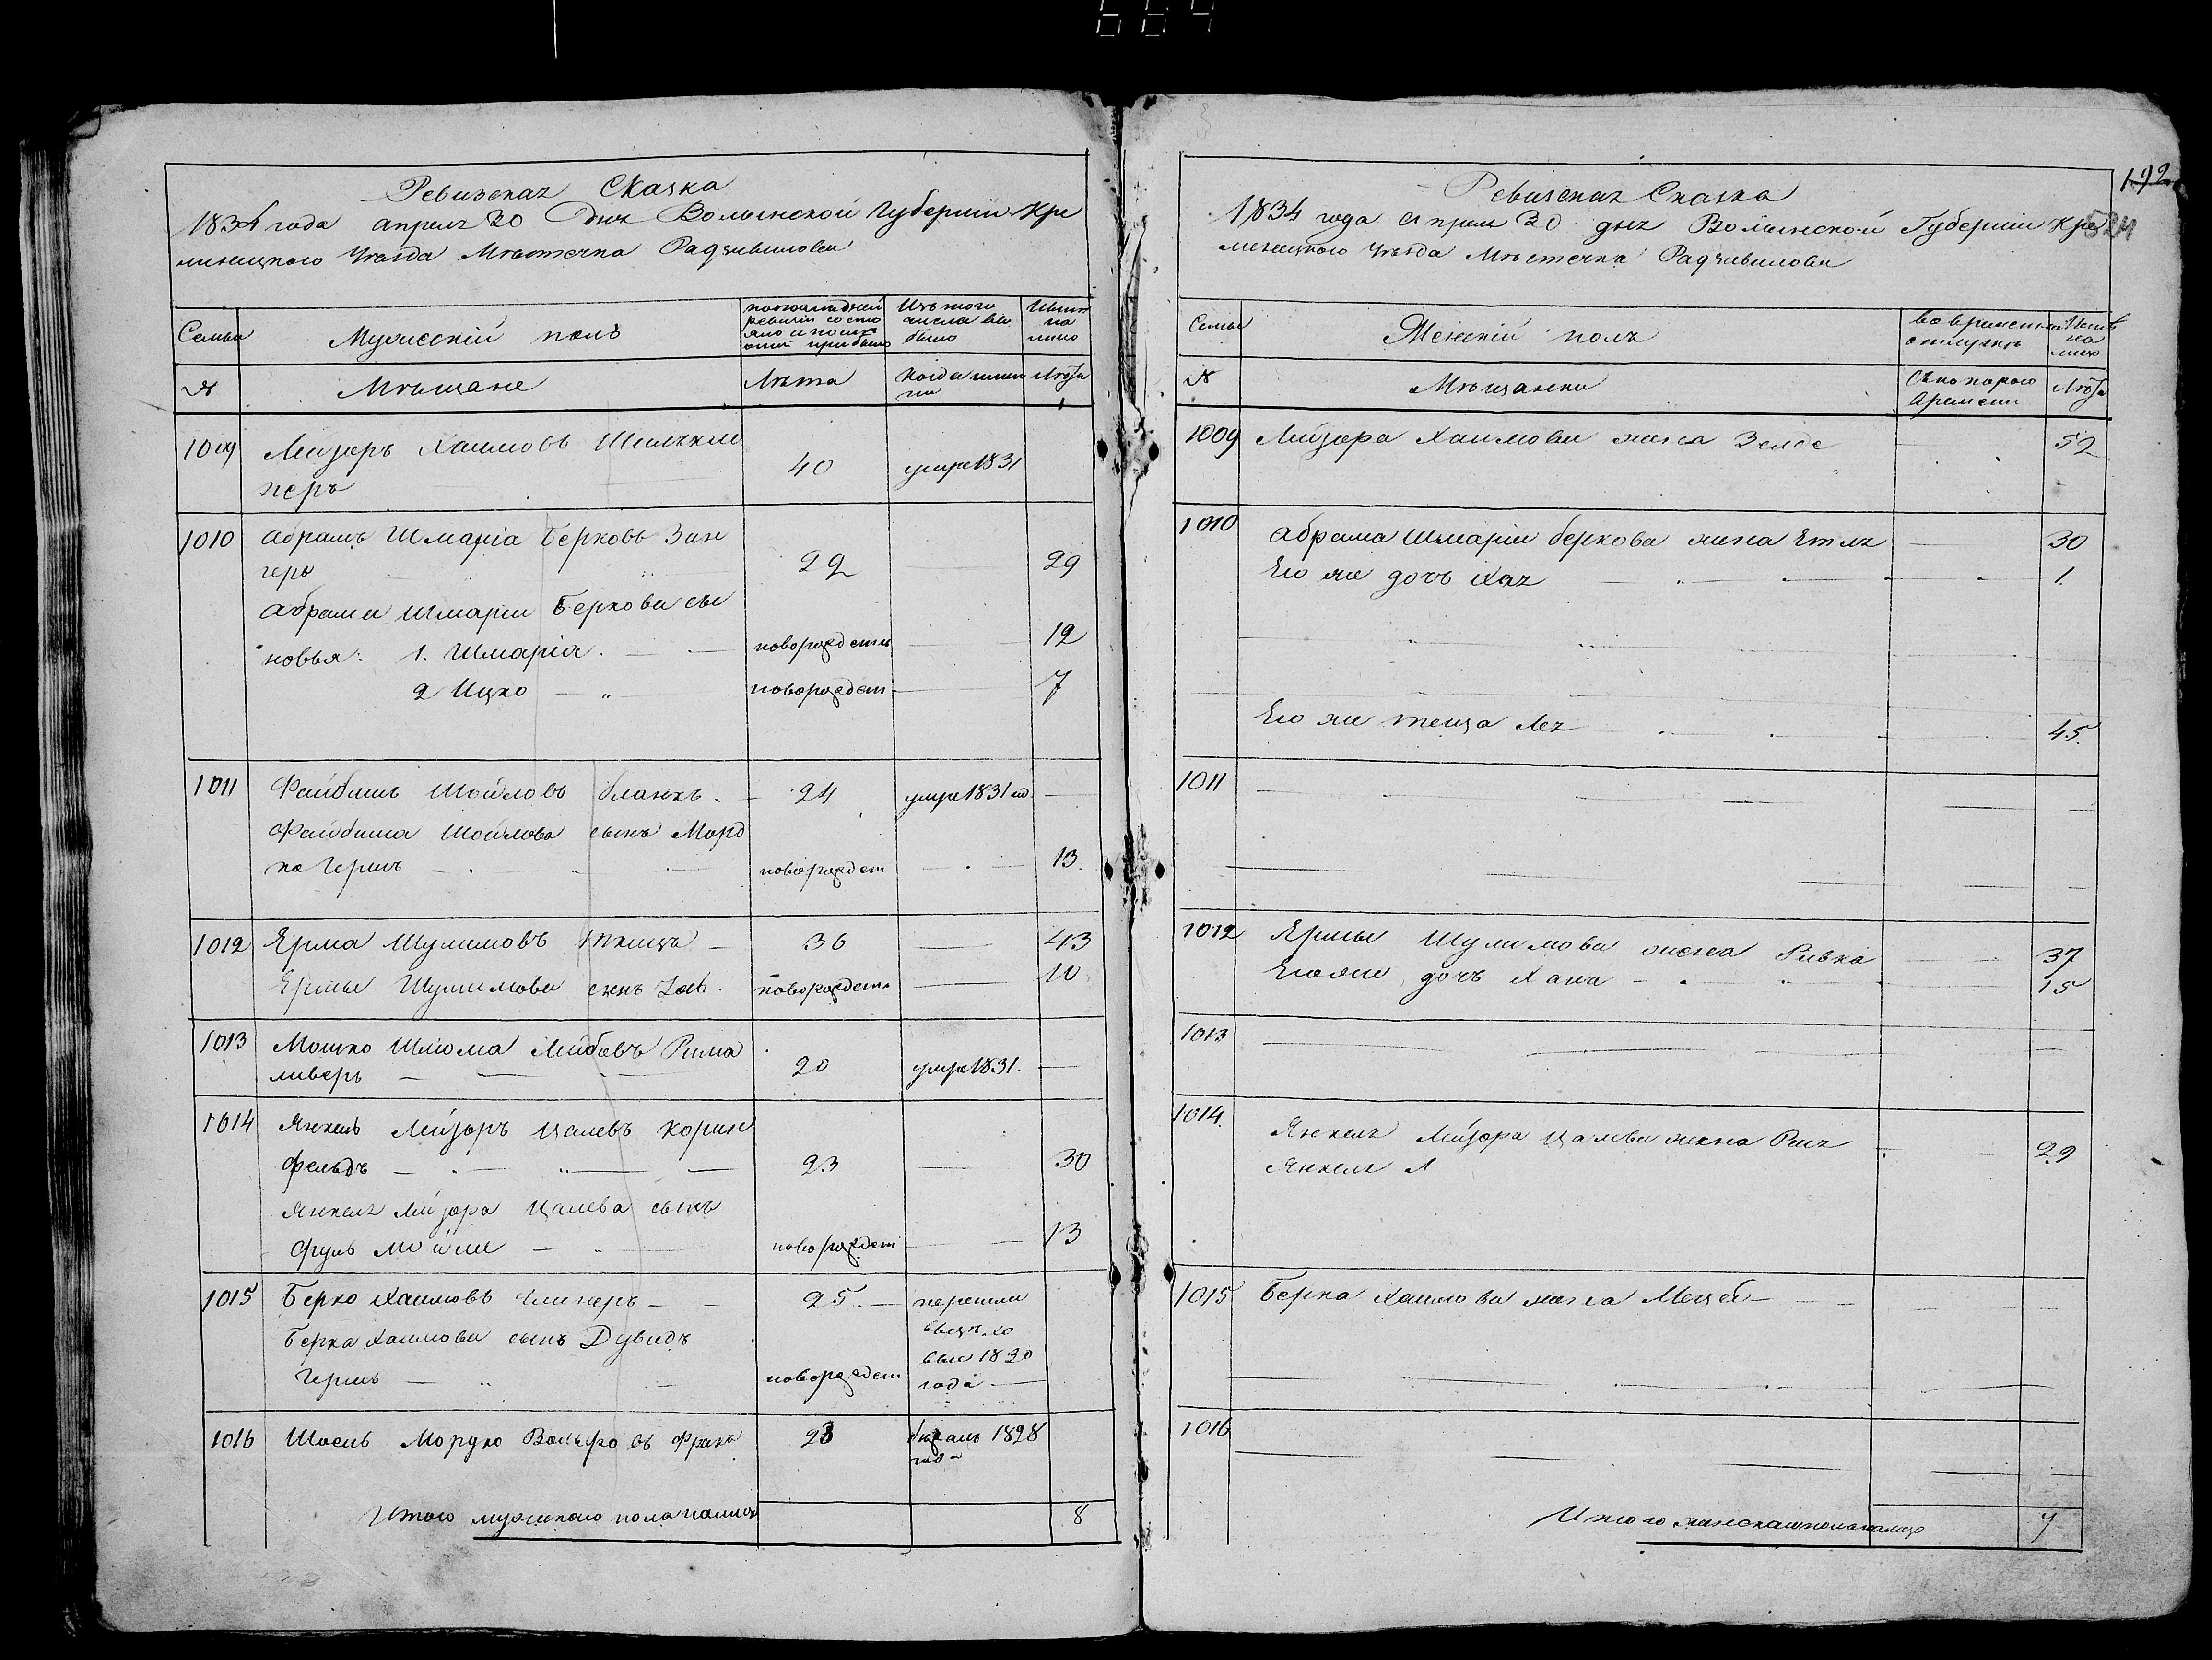 664
Ревизская Сказка
1834 года апреля 30 дня Волынской Губернии Кре
менецкого Уезда Местечка Радзивилова
Семьи
Мужескій полъ
по последней ревизіи состояло и после оной прибыло
Изъ того числа выбыло
Ныне на лицо
№
Мѣщане
Лѣта
Когда именно
Лѣта
1009 Лейзоръ Хаимовъ
перъ 40 умре 1831
1010 Абрамъ Шмарія Берковъ Зин
геръ 22 29
Абрама Шмаріи Беркова сы
новья: 1. Шмарія новорожден 12
2 Ицко новорожден 7
1011 Файбишъ Шойловъ Бланкъ 24 умре 1831 го
Файбиша Шойлова сынъ Морд
ко Гершъ новорожден 13
1012 Ерма Шулимовъ 36 43
Ермы Шулимова сынъ новорожден 10
1013 Мошко Шлома Лейбовъ Рима
ливеръ 20 умре 1831
1014 Янкель Лейзоръ Цалевъ Корин
фельдъ 23 30
Янкеля Лейзора Цалева сынъ
новорожден 13
1015 Берко Хаимовъ 25 перешли
Берка Хаимова сынъ Дувидъ
вы 1830
Гершъ новорожден года
1016 Шоель Мордко Вольфовъ 23 1828
года
Итого мужескаго пола налицо 8
192
524
Ревизская Сказка
1834 года апреля 30 дня Волынской Губерніи Кре
менецкого Уѣзда Мѣстечка Радзивилова
Семьи
Женскій полъ
во временной отлучкѣ
Нынѣ на лицо
№
Мѣщанки
Съ которого времени
Лѣта
1009 Лейзора Хаимова жена Зелде 52
1010 Абрама Шмаріи Беркова жена Етля 30
Его же дочь Хая 1
Его же теща Лея 45
1011
1012 Ермы Шулимова жена Ривка 37
Его же дочь Хана 15
1013
1014 Янкеля Лейзора Цалева жена 29
Янкеля Л
1015 Берка Хаимова жена
1016
Итого женскаго пола налицо 7